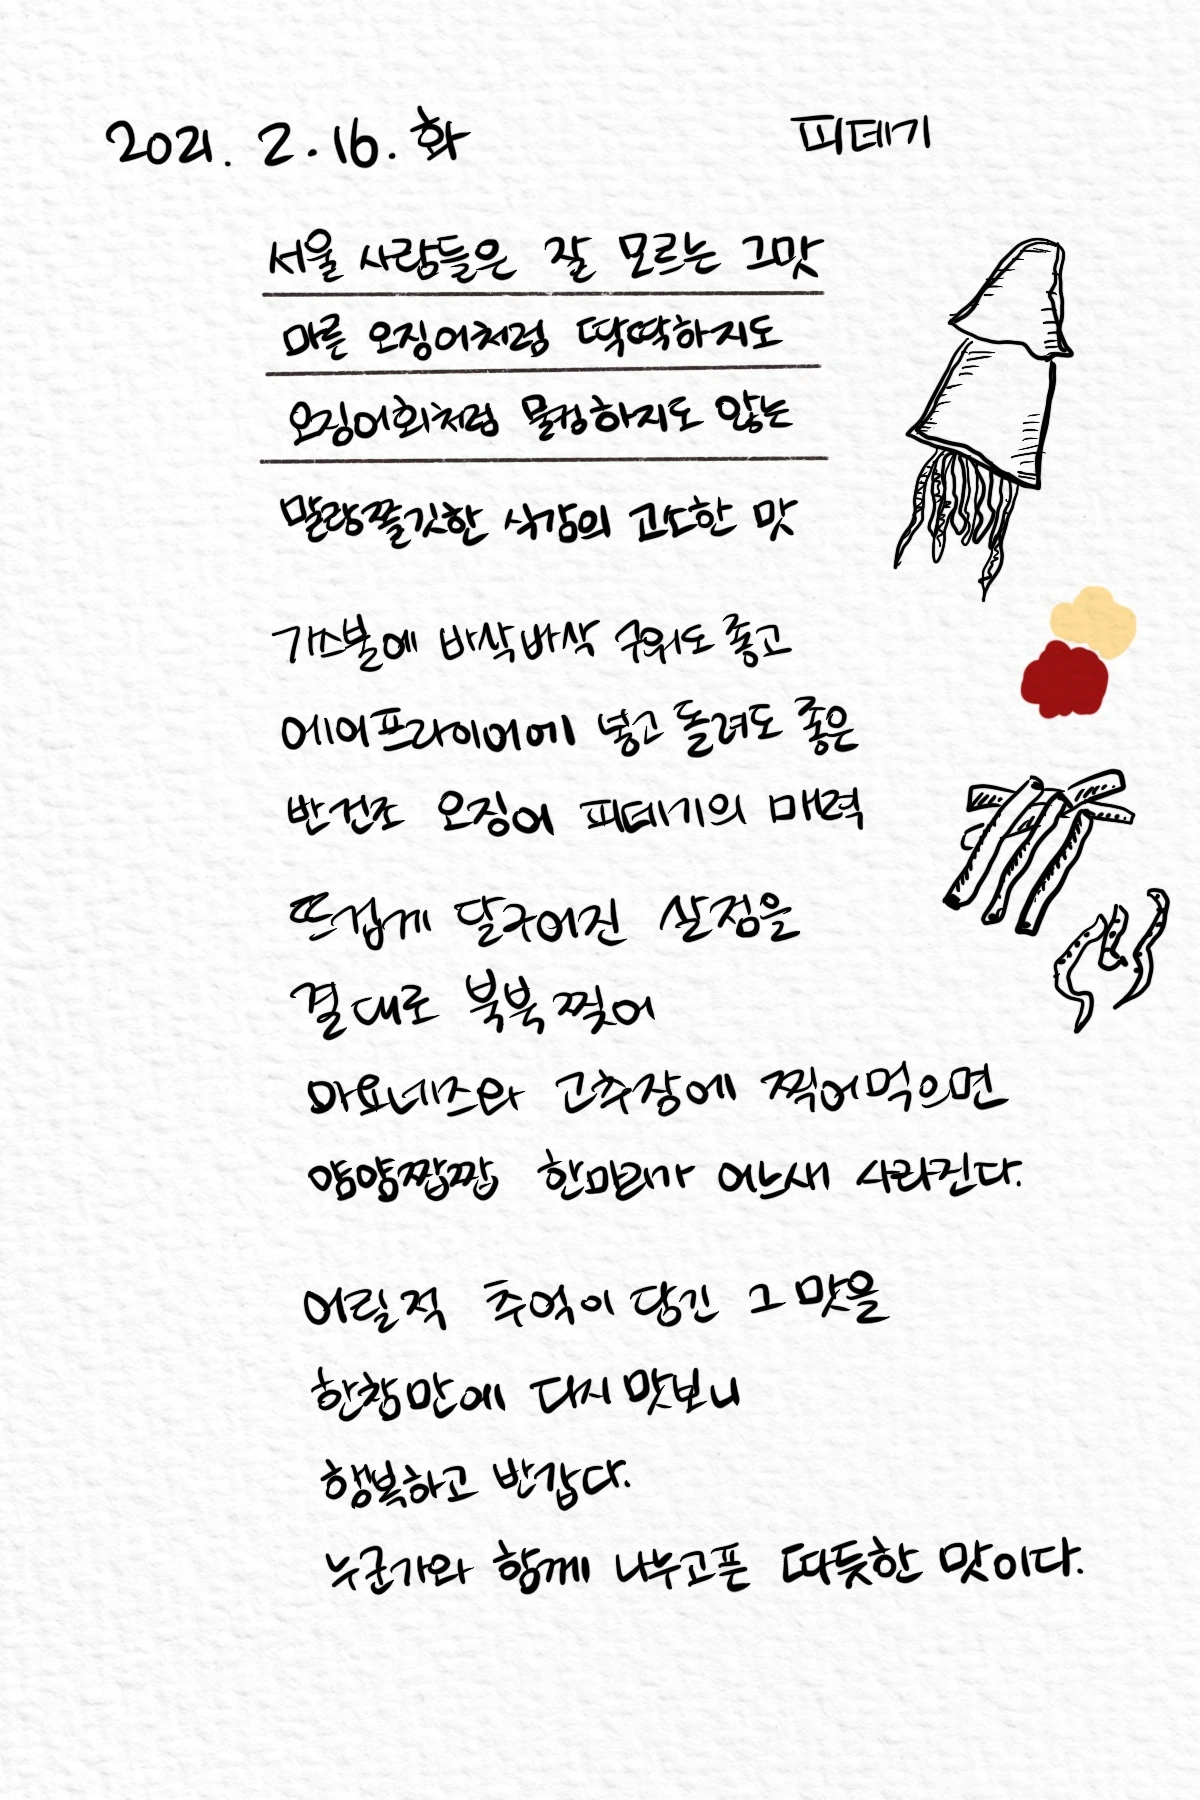 2021. 2. 16. 화
피데기
서울 사람들은 잘 모르는 그맛
마른 오징어처럼 딱딱하지도
오징어회처럼 물컹하지도 않는
말랑쫄깃한 식감의 고소한 맛
가스불에 바삭바삭 구워도 좋고
에이프라이어에 넣고 돌려도 좋은
반건조 오징어 피데기의 매력
뜨겁게 달구어진 살점을
결대로 북북 찢어
마요네즈와 고추장에 찍어먹으면
얌얌짭짭 한마리가 어느새 사라진다.
어릴적 추억이 담긴 그 맛을
한참만에 다시 맛보니
행복하고 반갑다.
누군가와 함께 나누고픈 따듯한 맛이다.